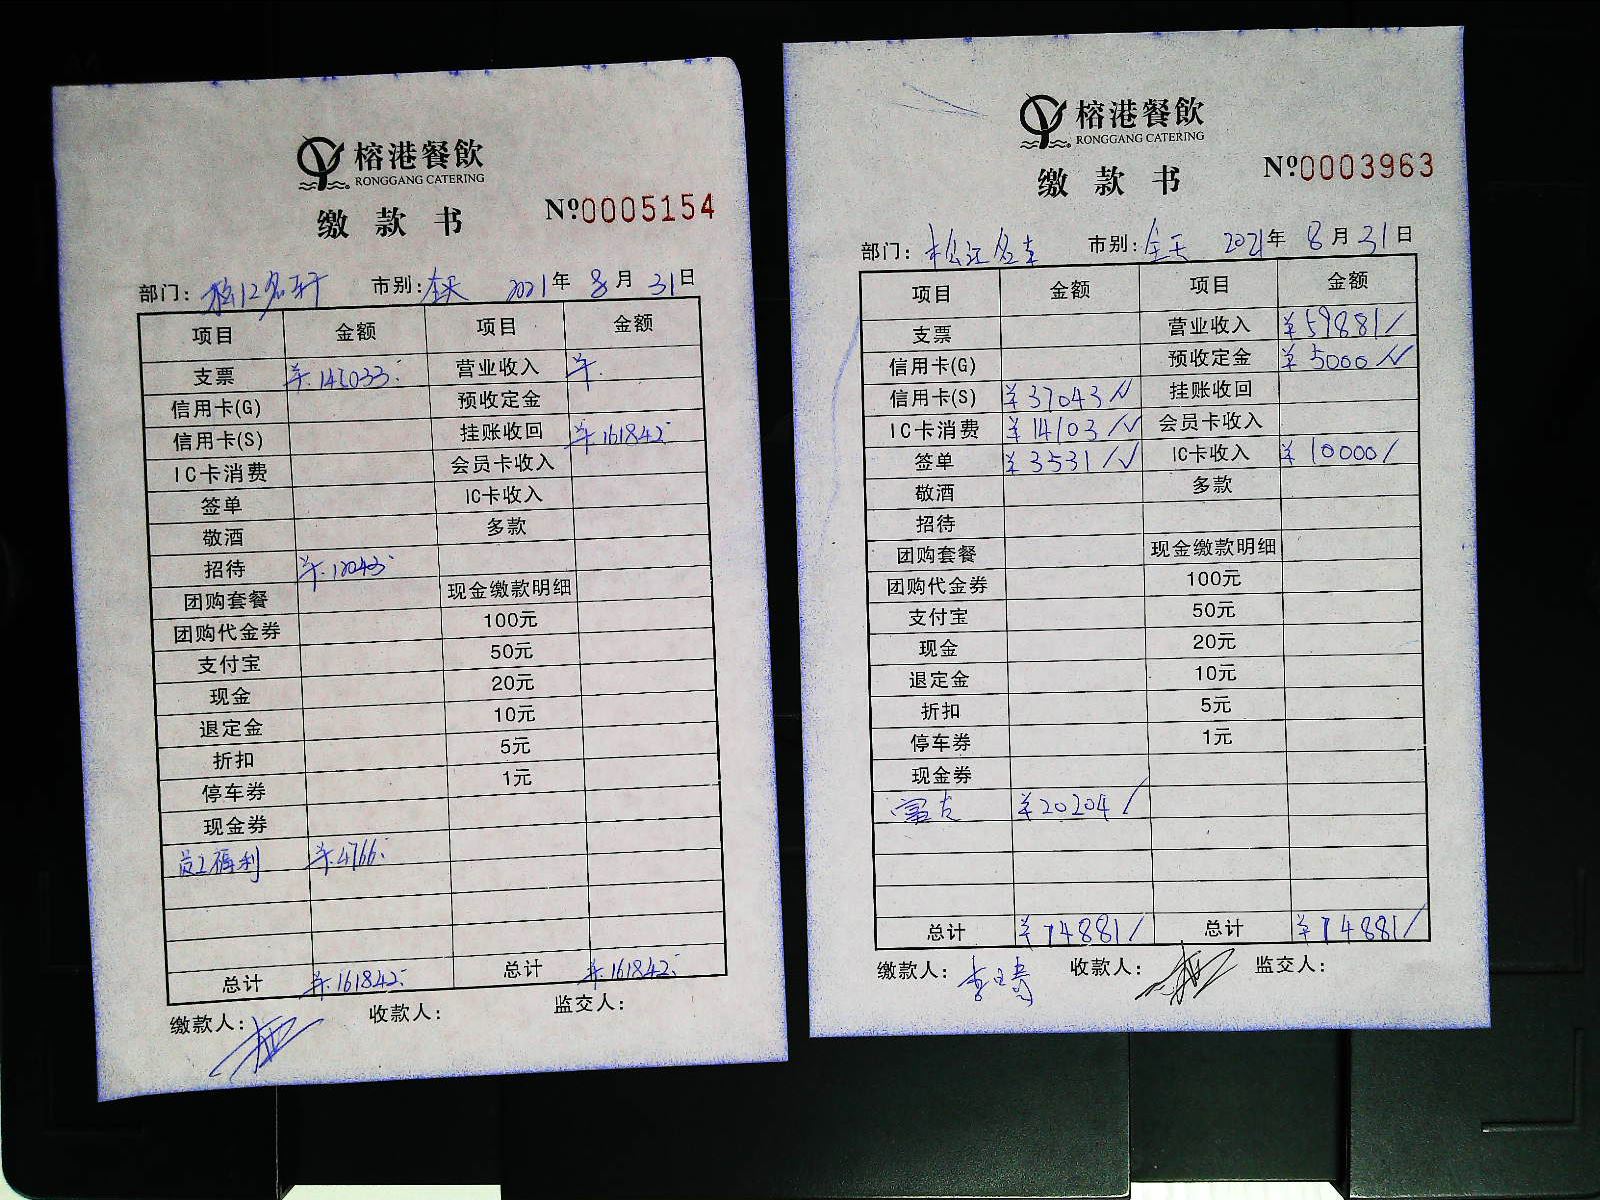 榕港餐飲
RONGGANG CATERING
缴款书 Nº0005154
部门: 松江名轩 市别: 全天 2021年 8月 31日
项目 金额 项目 金额
支票 ¥145033. 营业收入 ¥.
信用卡(G) 预收定金
信用卡(S) 挂账收回 ¥161842.
IC卡消费 会员卡收入
签单 IC卡收入
敬酒 多款
招待 ¥12043.
团购套餐 现金缴款明细
团购代金券 100元
支付宝 50元
现金 20元
退定金 10元
折扣 5元
停车券 1元
现金券
员工福利 ¥4766.
总计 ¥161842. 总计 ¥161842.
缴款人: 收款人: 监交人:
榕港餐飲
RONGGANG CATERING
缴款书 Nº0003963
部门: 松江名 市别: 全天 2021年 8月 31日
项目 金额 项目 金额
支票 营业收入 ¥59881/
信用卡(G) 预收定金 ¥5000/
信用卡(S) ¥37043/ 挂账收回
IC卡消费 ¥14103/ 会员卡收入
签单 ¥3531/ IC卡收入 ¥10000/
敬酒 多款
招待
团购套餐 现金缴款明细
团购代金券 100元
支付宝 50元
现金 20元
退定金 10元
折扣 5元
停车券 1元
现金券
富友 ¥20204/
总计 ¥74881/ 总计 ¥74881/
缴款人: 收款人: 监交人: